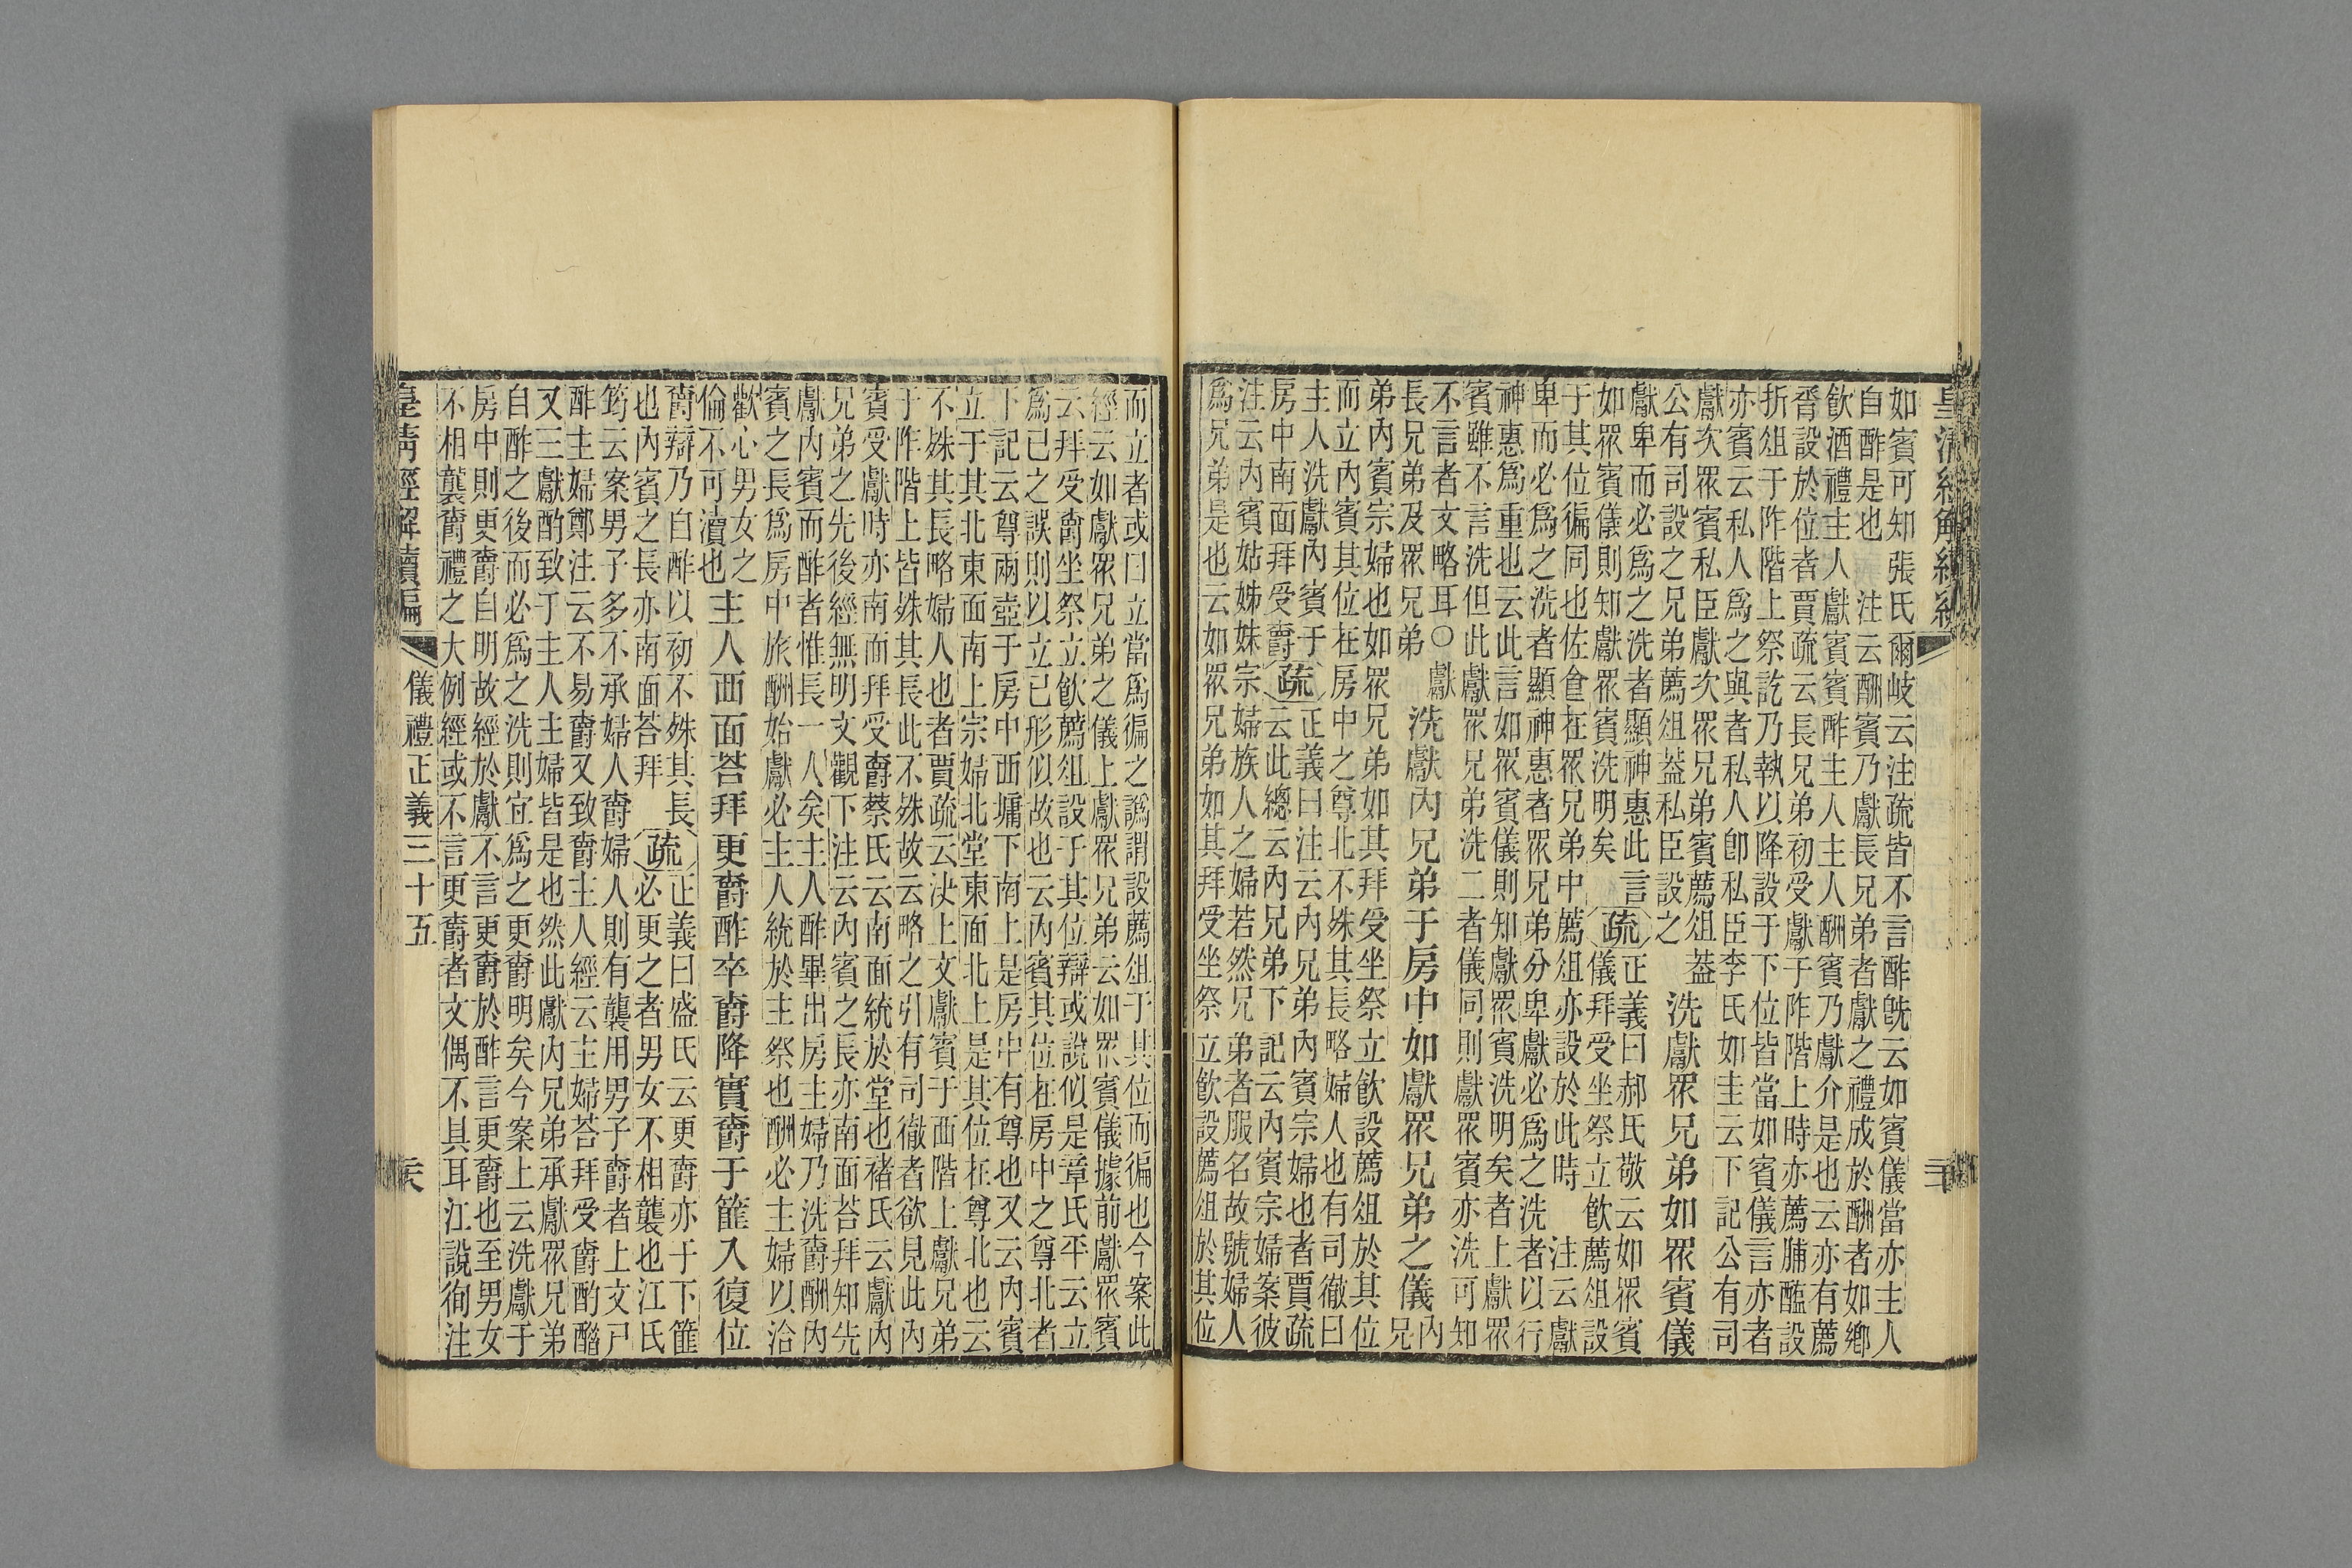 皇清經解續編
如賓可知張氏爾岐云注疏皆不言酢旣云如賓儀當亦主人
自酢是也注云酬賓乃獻長兄弟者獻之禮成於酬者如鄉
飮酒禮主人獻賓賓酢主人主人酬賓乃獻介是也云亦有薦
脀設於位者賈疏云長兄弟初受獻于阼階上時亦薦脯醢設
折俎于阼階上祭訖乃執以降設于下位皆當如賓儀言亦者
亦賓云私人爲之與者私人卽私臣李氏如圭云下記公有司
獻次眾賓私臣獻次眾兄弟賓薦俎葢
公有司設之兄弟薦俎葢私臣設之
洗獻眾兄弟如眾賓儀
獻卑而必爲之洗者顯神惠此言
如眾賓儀則知獻眾賓洗明矣
疏
正義曰郝氏敬云如眾賓
儀拜受坐祭立飮薦俎設
于其位徧同也佐食在眾兄弟中薦俎亦設於此時 注云獻
卑而必爲之洗者顯神惠者眾兄弟分卑獻必爲之洗者以行
神惠爲重也云此言如眾賓儀則知獻眾賓洗明矣者上獻眾
賓雖不言洗但此獻眾兄弟洗二者儀同則獻眾賓亦洗可知
不言者文略耳○獻
長兄弟及眾兄弟
洗獻內兄弟于房中如獻眾兄弟之儀
內兄
弟內賓宗婦也如眾兄弟如其拜受坐祭立飮設薦俎於其位
而立內賓其位在房中之尊北不殊其長略婦人也有司徹曰
主人洗獻內賓于
房中南面拜受爵
疏
正義曰注云內兄弟內賓宗婦也者賈疏
云此總云內兄弟下記云內賓宗婦案彼
注云內賓姑姊妹宗婦族人之婦若然兄弟者服名故號婦人
爲兄弟是也云如眾兄弟如其拜受坐祭立飮設薦俎於其位
而立者或曰立當爲徧之譌謂設薦俎于其位而徧也今案此
經云如獻眾兄弟之儀上獻眾兄弟云如眾賓儀據前獻眾賓
云拜受爵坐祭立飮薦俎設于其位辯或說似是章氏平云立
爲已之誤則以立已形似故也云內賓其位在房中之尊北者
下記云尊兩壺于房中西墉下南上是房中有尊也又云內賓
立于其北東面南上宗婦北堂東面北上是其位在尊北也云
不殊其長略婦人也者賈疏云決上文獻賓于西階上獻兄弟
于阼階上皆殊其長此不殊故云略之引有司徹者欲見此內
賓受獻時亦南面拜受爵蔡氏云南面統於堂也褚氏云獻內
兄弟之先後經無明文觀下注云內賓之長亦南面荅拜知先
獻內賓而酢者惟長一人矣主人酢畢出房主婦乃洗爵酬內
賓之長爲房中旅酬始獻必主人統於主祭也酬必主婦以洽
歡心男女之
倫不可瀆也
主人西面荅拜更爵酢卒爵降實爵于篚入復位
爵辯乃自酢以初不殊其長
也內賓之長亦南面荅拜
疏
正義曰盛氏云更爵亦于下篚
必更之者男女不相襲也江氏
筠云案男子多不承婦人爵婦人則有襲用男子爵者上文已
酢主婦鄭注云不易爵又致爵主人經云主婦荅拜受爵酌醋
又三獻酌致于主人主婦皆是也然此獻內兄弟承獻眾兄弟
自酢之後而必爲之洗則宜爲之更爵明矣今案上云洗獻于
房中則更爵自明故經於獻不言更爵於酢言更爵也至男女
不相襲爵禮之大例經或不言更爵者文偶不具耳江說徇注
皇清經解續編
儀禮正義三十五